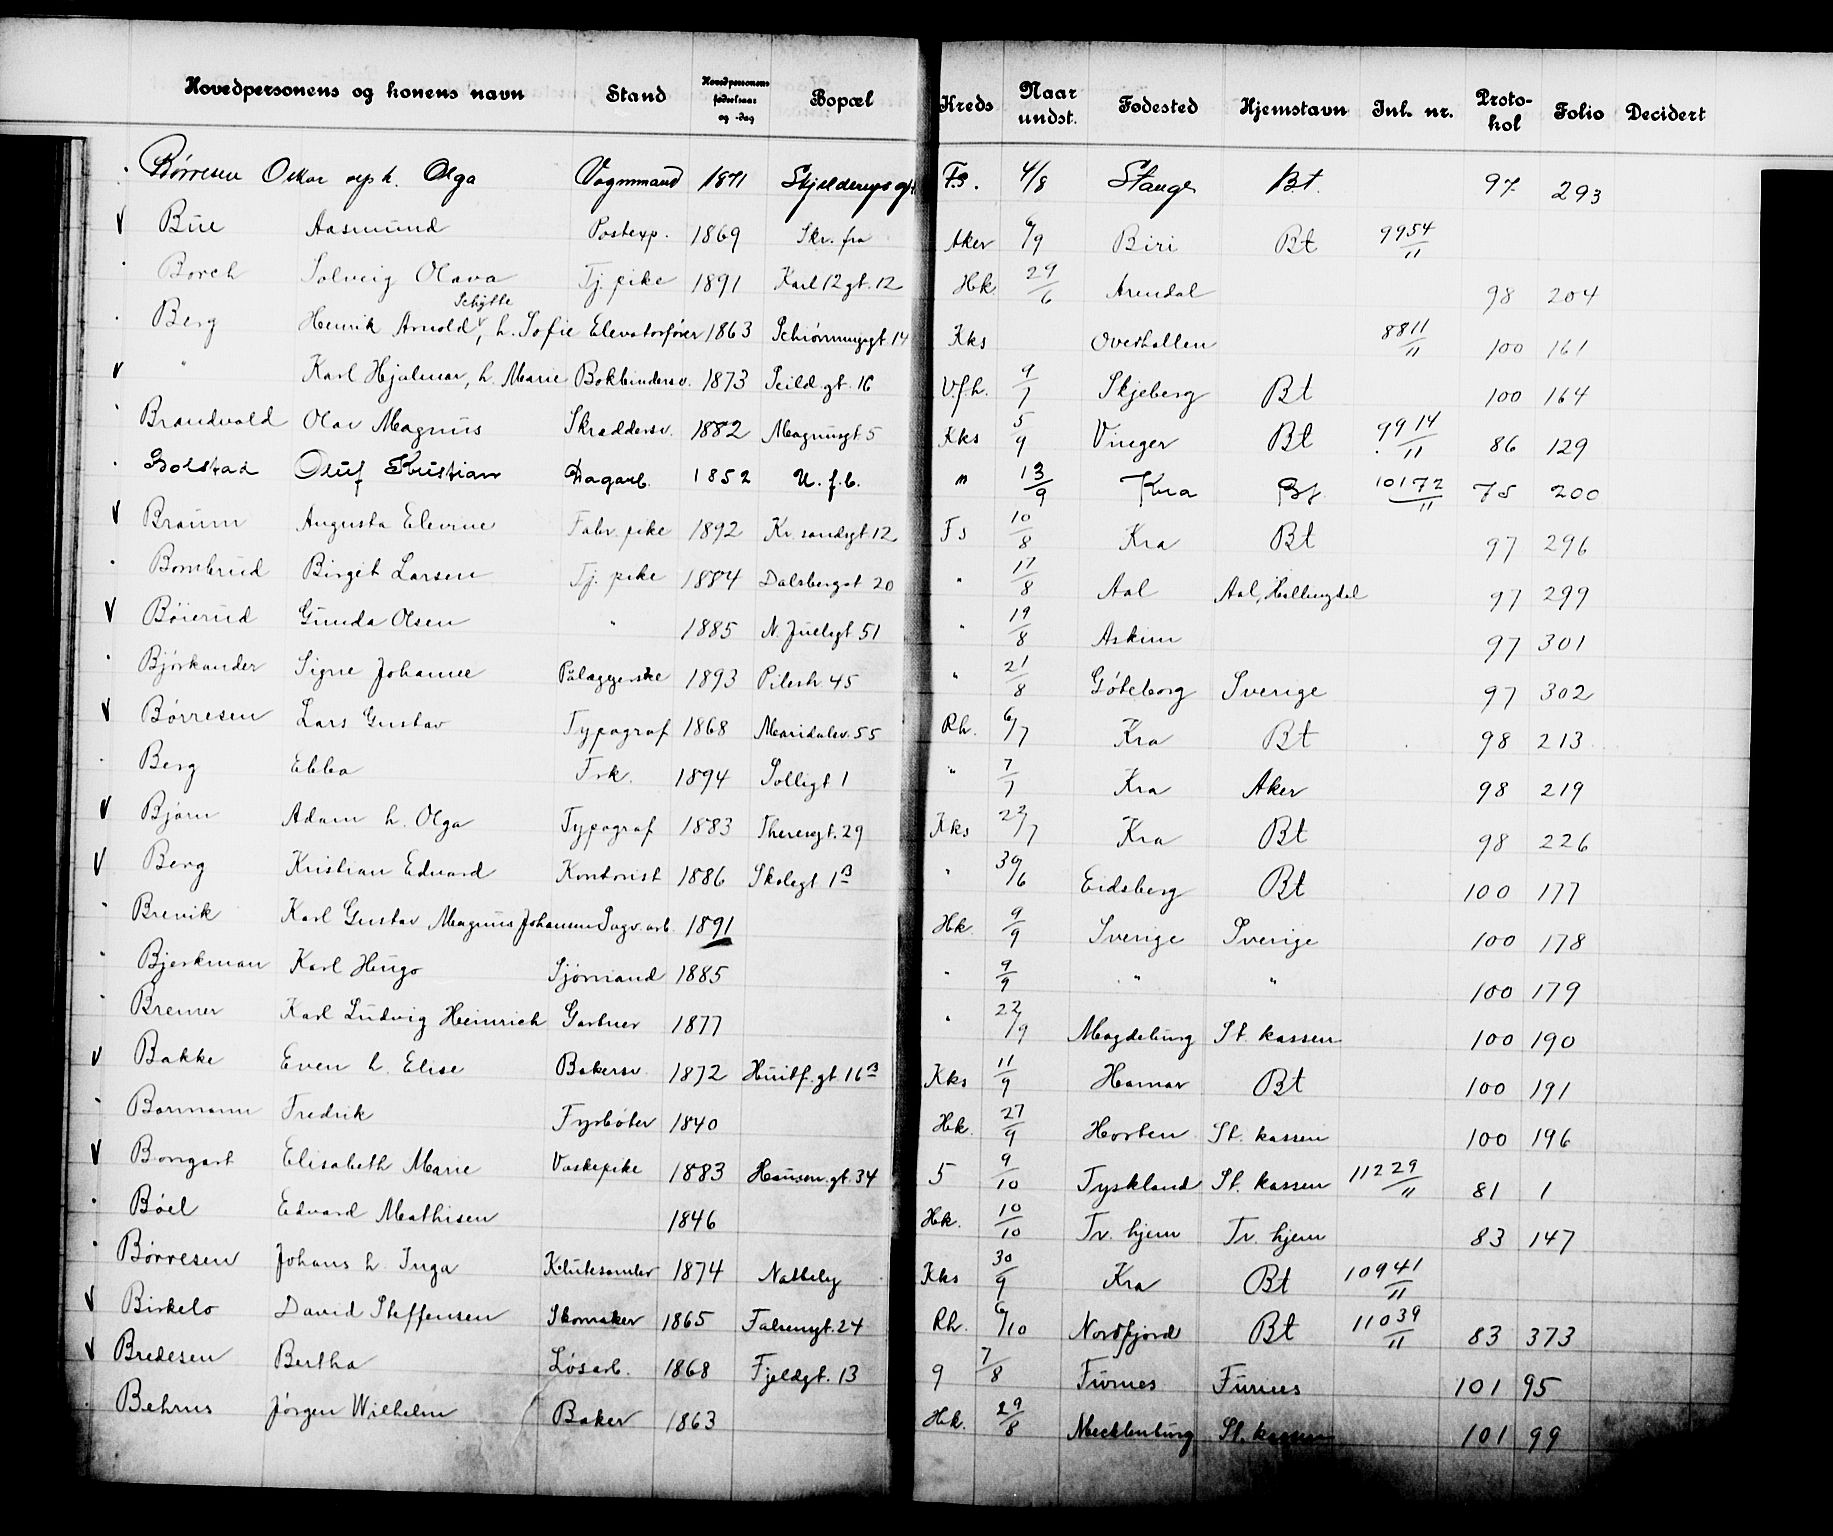 Hovedpersonens og konens navn Stand Hovedpersonens fødselsaar og -dag Bopæl Kreds Naar undst. Fødested Hjemstavn Ink. nr. Protokol Folio Decidert
Børresen Oskar sep h. Olga Vognmand 1871 Skjelderups gt F.s. 4/8 Stange Bt. 97 293
V Bue Aasmund Postexp. 1869 Skr. fra Aker 6/9 Biri Bt 9954/11
Borch Solveig Olava Tj. pike 1891 Karl 12 gt. 12 Hk. 29/6 Arendal 98 204
Berg Henrik Arnold Schytte, h. Sofie Elevatorfører 1863 Schiønningsgt. 14 Kks Overhallen 8811/11 100 161
V " Karl Hjalmar, h. Marie Bokbindersv. 1873 Seildgt. 16 V.f.h. 9/7 Skjeberg Bt 100 164
Brandvold Olav Magnus Skreddersv. 1882 Magnusgt. 5 Kks 5/9 Vinger Bt 9914/11 86 129
Bolstad Oluf Kristian Dagarb. 1852 U. f. b. " 13/9 Kra Bt 10172/11 75 200
V Braum Augusta Elevine Fabr. pike 1892 Kr. sandsgt. 12 Fs 10/8 Kra Bt 97 296
Bombrud Birgit Larsen Tj. pike 1884 Dalsbergst 20 " 17/8 Aal Aal, Hallingdal 97 299
V Bøierud Gunda Olsen " 1885 N. Juelsgt 51 " 19/8 Askim 97 301
Bjørkander Signe Johanne Pålæggerske 1893 Pilestr. 45 " 21/8 Göteborg Sverige 97 302
V Børresen Lars Gustav Typograf 1868 Maridalsv. 55 Rh. 6/7 Kra Bt 98 213
Berg Ebba Frk. 1894 Solligt 1 " 7/7 Kra Aker 98 219
V Bjørn Adam h. Olga Typograf 1883 Theresgt. 29 Kks 22/7 Kra Bt 98 226
V Berg Kristian Edvard Kontorist 1886 Skolegt 1 B " 30/6 Eidsberg Bt 100 177
Brevik Karl Gustav Magnus Johansen Sagv. arb. 1891 Hk. 9/9 Sverige Sverige 100 178
Bjerkman Karl Hugo Sjømand 1885 " 9/9 " " 100 179
Bremer Karl Ludvig Heinrich Gartner 1877 " 22/9 Magdeburg St. kassen 100 190
V Bakke Even h. Elise Bakersv. 1872 Huitf. gt. 16 B Kks 11/9 Hamar Bt 100 191
Bormann Fredrik Fyrbøter 1840 Hk. 27/9 Horten St. kassen 100 196
V Bongart Elisabeth Marie Vaskepike 1883 Hausm. gt. 34 5 9/10 Tyskland St. kassen 11229/11 81 1
Bøel Edvard Mathisen 1846 Hk. 10/10 Tv. hjem Tv. hjem 83 147
Børresen Johans h. Inga Klutesamler 1874 Natteby Kks 30/9 Kra Bt 10941/11
V Birkelo David Steffensen Skomaker 1865 Falsensgt. 24 Rh. 6/10 Nordfjord Bt 11039/11 83 373
V Bredesen Bertha Løsarb. 1868 Fjeldgt. 13 9 7/8 Furnes Furnes 101 95
Behrns Jörgen Wilhelm Baker 1863 Hk. 29/8 Mecklenburg St. kassen 101 99